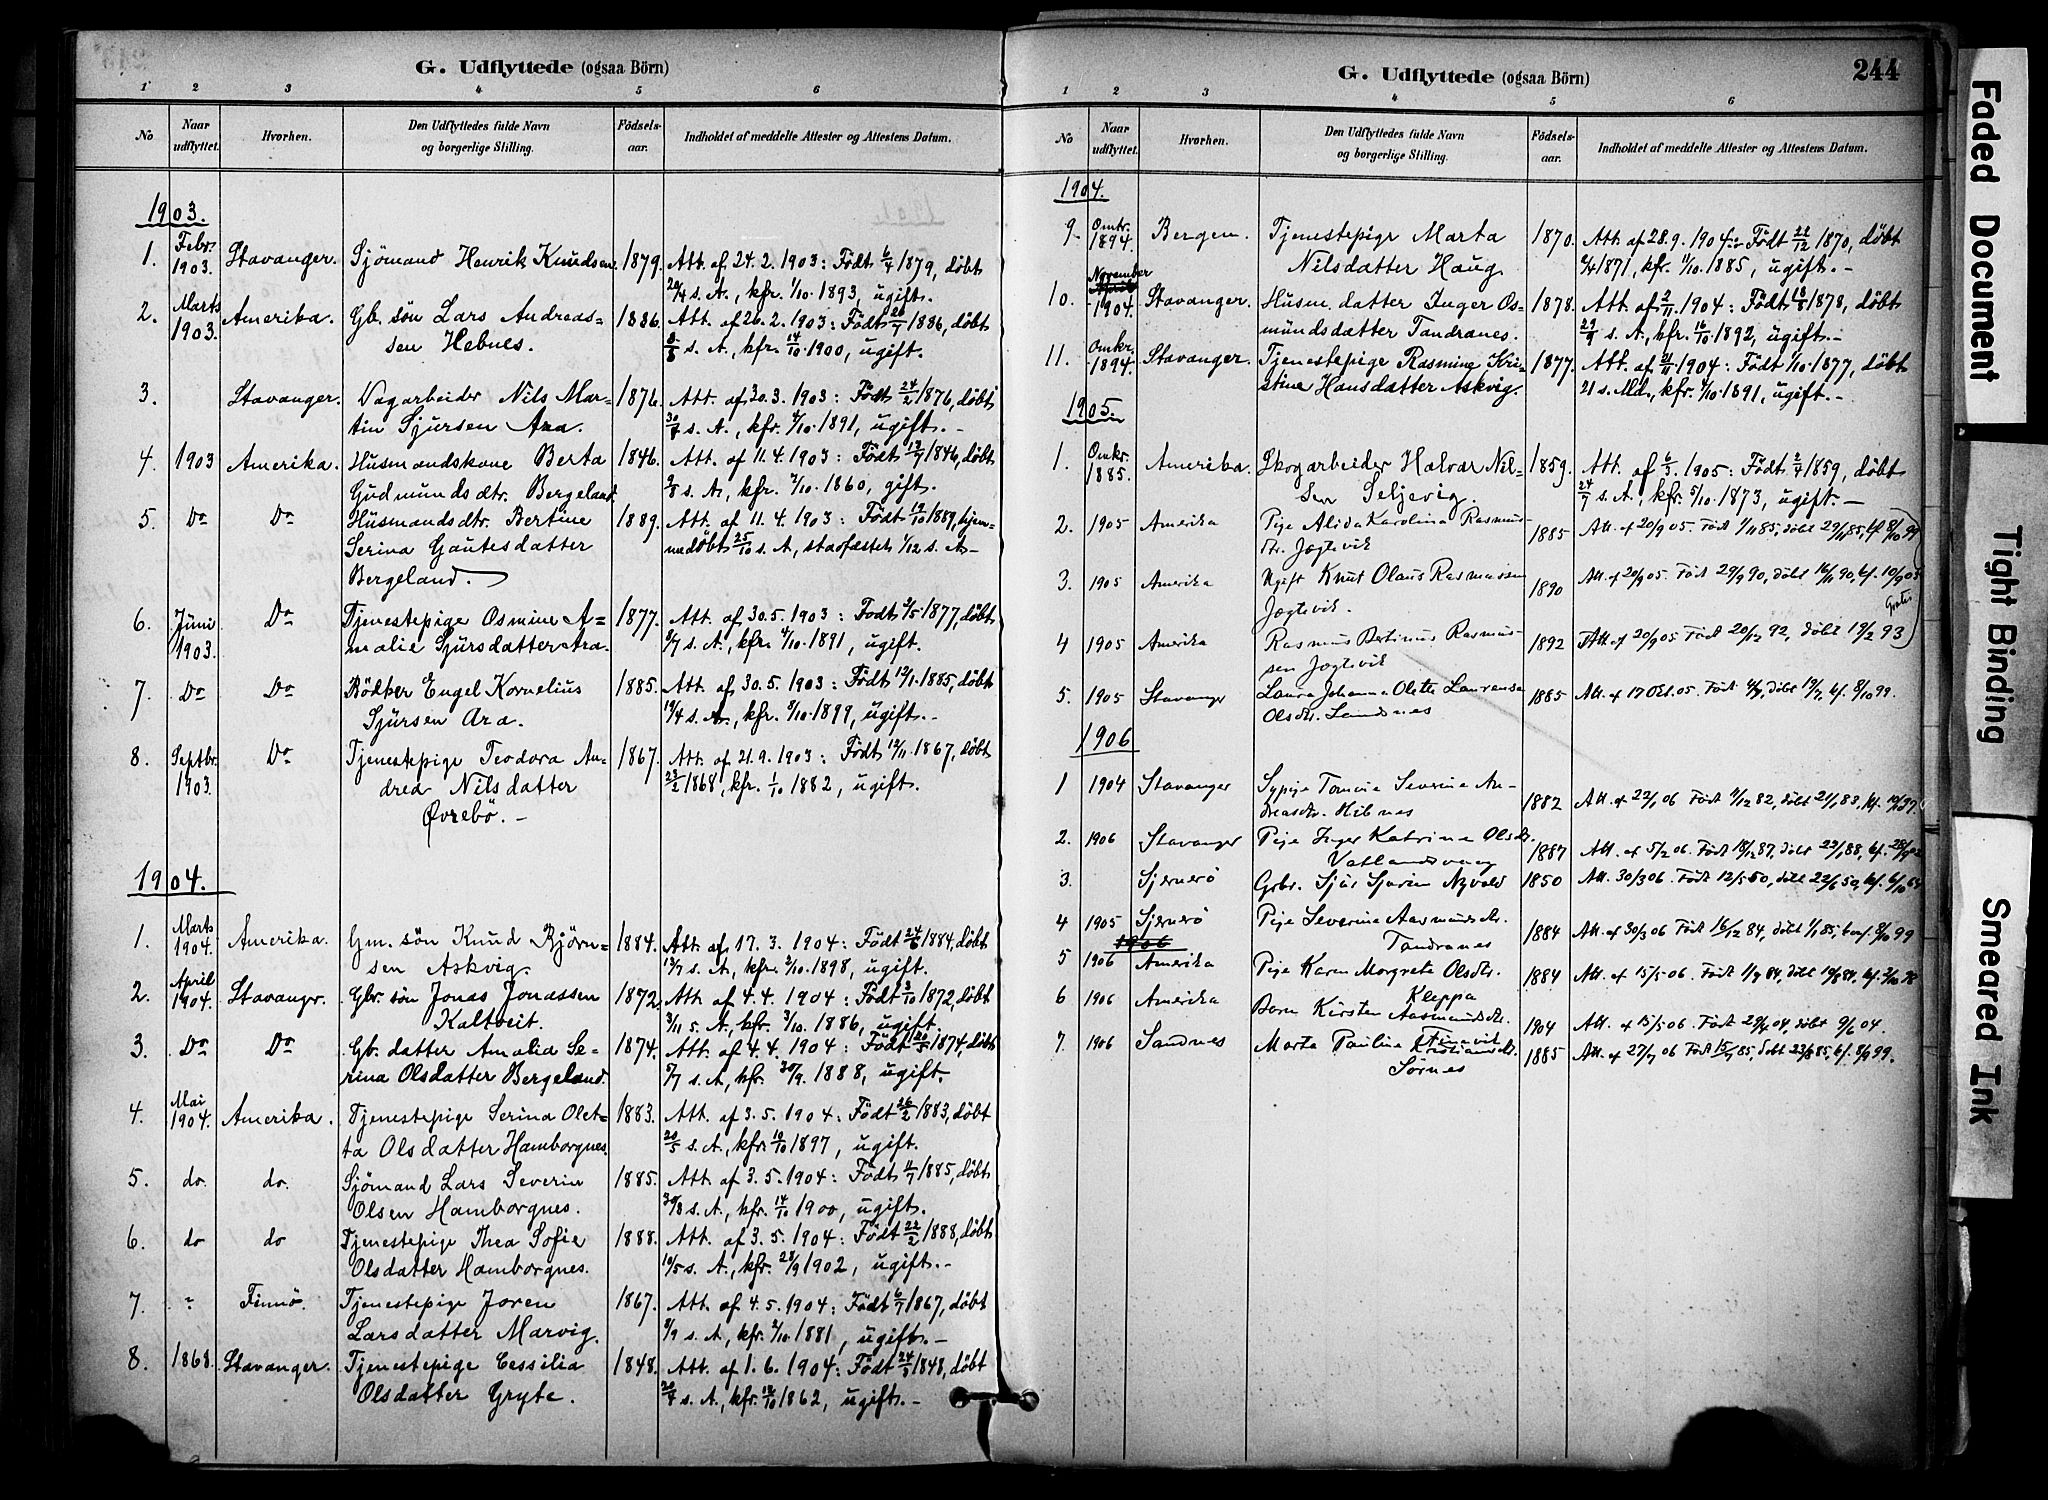 G. Udflyttede (ogsaa Börn)
1 2 3 4 5 6
No Naar udflyttet. Hvorhen. Den Udflyttedes fulde Navn og borgerlige Stilling. Födsels-aar. Indholdet af meddelte Attester og Attestens Datum.
1903.
1. Febr. 1903. Stavanger. Sjömand Henrik Knudsen. 1879. Att. af 24.2.1903: Født 6/4 1879, döbt
20/4 s. A., kfr. 1/10 1893, ugift.
2. Marts 1903. Amerika. Gb. sön Lars Andreas- 1886. Att. af 26.2.1903: Født 20/7 1886, döbt
sen Hebnes. 8/8 s. A., kfr. 14/10 1900, ugift.
3. Stavanger. Dagarbeider Nils Mar- 1876. Att. af 30.3.1903: Født 24/2 1876, döbt
tin Sjursen Ara. 30/4 s. A., kfr. 4/10 1891, ugift.-
4. 1903 Amerika. Husmandskone Berta 1846. Att. af 11.4.1903: Født 12/7 1846, döbt
Gudmundsdtr. Bergeland. 2/8 s. A., kfr. 7/10 1860, gift.
5. Do Do Husmandsdtr. Bertine 1889. Att. af 11.4.1903: Født 19/10 1889, hjem-
Serina Gautesdatter medöbt 25/10 s. A, stadfæstet 1/12 s. A-
Bergeland.
6. Juni 1903. Do Tjenestepige Osmine A- 1877. Att. af 30.5.1903: Født 2/5 1877, döbt
malie Sjursdatter Ara. 8/7 s. A., kfr. 4/10 1891, ugift.
7. Do Do Bödker Engel Kornelius 1885. Att. af 30.5.1903: Født 12/1 1885, döbt
Sjursen Ara. 19/4 s. A., kfr. 8/10 1899, ugift.-
8. Septbr. 1903. Do Tjenestepige Teodora An- 1867. Att. af 21.9.1903: Født 12/11 1867, döbt
drea Nilsdatter 23/2 1868, kfr. 1/10 1882, ugift.
Øvrebö.-
1904.
1. Marts 1904. Amerika. Gm. sön Knud Bjørn- 1884. Att. af 17.3.1904: Født 24/6 1884, döbt
sen Askvig. 13/7 s. A., kfr. 2/10 1898, ugift.
2. April 1904. Stavanger. Gbr. sön Jonas Jonassen 1872. Att. af 4.4.1904: Født 3/10 1872, döbt
Kaltveit. 3/11 s. A., kfr. 3/10 1886, ugift.
3. Do Do Gb. datter Amalia Se- 1874. Att. af 4.4.1904: Født 20/5 1874, döbt
rina Olsdatter Bergeland. 5/7 s. A, kfr. 30/9 1888, ugift.
4. Mai 1904. Amerika. Tjenestepige Serina Olet- 1883. Att. af 3.5.1904: Født 26/2 1883, döbt
ta Olsdatter Hamborgnes. 20/5 s. A., kfr. 10/10 1897, ugift.
5. do. do. Sjömand Lars Severin 1885. Att. af 3.5.1904: Født 11/7 1885, döbt
Olsen Hamborgnes. 30/8 s. A., kfr. 14/10 1900, ugift.
6. do do Tjenestepige Thea Sofie 1888. Att. af 3.5.1904: Født 22/2 1888, döbt
Olsdatter Hamborgnes. 10/5 s. A., kfr. 28/9 1902, ugift.-
7. Finnö. Tjenestepige Joren 1867. Att. af 4.5.1904: Født 6/7 1867, döbt
Larsdatter Marvig. 8/9 s. A., kfr. 2/10 1881, ugift.-
8. 1868. Stavanger. Tjenestepige Cessilia 1848. Att. af 1.6.1904: Født 24/3 1848, döbt
Olsdatter Gryte. 20/4 s. A., kfr. 12/10 1862, ugift.-
G. Udflyttede (ogsaa Börn) 244
1 2 3 4 5 6
No Naar udflyttet. Hvorhen. Den Udflyttedes fulde Navn og borgerlige Stilling. Födsels-aar. Indholdet af meddelte Attester og Attestens Datum.
1904.
9. Omkr. 1894. Bergen. Tjenestepige Marta 1870. Att. af 28.9.1904: Født 22/12 1870, döbt
Nilsdatter Haug. 1871, kfr. 11/10 1885, ugift.-
10. November 1904. Stavanger. Husm. datter Inger Os- 1878. Att. af 2/11 1904: Født 18/8 1878, döbt
mundsdatter Tandranes. 29/9 s. A., kfr. 16/10 1892, ugift.-
11. Omkr. 1894. Stavanger. Tjenestepige Rasmine Kri- 1877. Att. af 21/11 1904: Født 1/10 1877, döbt
stine Hansdatter Askvig. 21 s. Md., kfr. 4/10 1891, ugift.-
1905.
1. Omkr. 1885. Amerika. Skogarbeider Halvar Nil- 1859. Att. af 6/3 1905: Født 2/4 1859, döbt
sen Seljevig. 24/7 s. A., kfr. 5/10 1873, ugift.-
2. 1905 Amerika Pige Alida Karolina Rasmus- 1885 Att. af 20/9 05. Født 1/11 85, döbt 29/11 85, kf. 8/10 99
dtr. Jogtevik
3. 1905 Amerika Ugift Knut Olaus Rasmussen 1890 Att. af 20/9 05. Født 29/9 90, döbt 16/11 90, kf. 10/9 05
Jogtevik. Gratis
4 1905 Amerika Rasmus Bertinus Rasmus- 1892 Att. af 20/9 05 Født 20/12 92, döbt 19/2 93
sen Jogtevik
5. 1905 Stavanger Laura Johanna Olette Laurense 1885 Att. af 17 Okt. 05. Født döbt 19/7, kf. 8/10 99.
Olsdtr. Sandnes
1906
1 1904 Stavanger Sypige Tomine Severine An- 1882 Att. af 22/1 06 Født 9/12 82, döbt 21/1 83, kf. 10/10 97.
dreasdtr. Hebnes
2. 1906 Stavanger Pige Inger Katrine Olsdtr. 1887 Att. af 5/2 06. Født 18/12 87, döbt 22/1 88, kf. 28/9 02
Vatlandsvaag
3. Sjernerö Grbr. Sjur Sjursen Nyvold 1850 Att. 30/3 06. Født 12/5 50, döbt 22/6 50, kf. 6/10 64
4 1905 Sjernerö Pige Severine Aasmundsdtr. 1884 Att. af 30/3 06 Født 16/12 84, döbt 1/1 85, konf. 8/10 99
Tandranes
5 1906 Amerika Pige Karen Margrete Olsdtr. 1884 Att. af 15/5 06. Født 1/7 84, döbt 10/8 84, kf. 2/10 98
Kleppa
6 1906 Amerika Barn Kirsten Aasmundsdtr. 1904 Att. af 15/5 06. Født 29/4 04, döbt 9/6 04.
7. 1906 Sandnes Marta Pauline Kristiansdtr. 1885 Att. af 27/7 06 Født 15/7 85, döbt 23/8 85, kf. 8/9 99.
Sørnes
Faded Document
Tight Binding
Smeared Ink